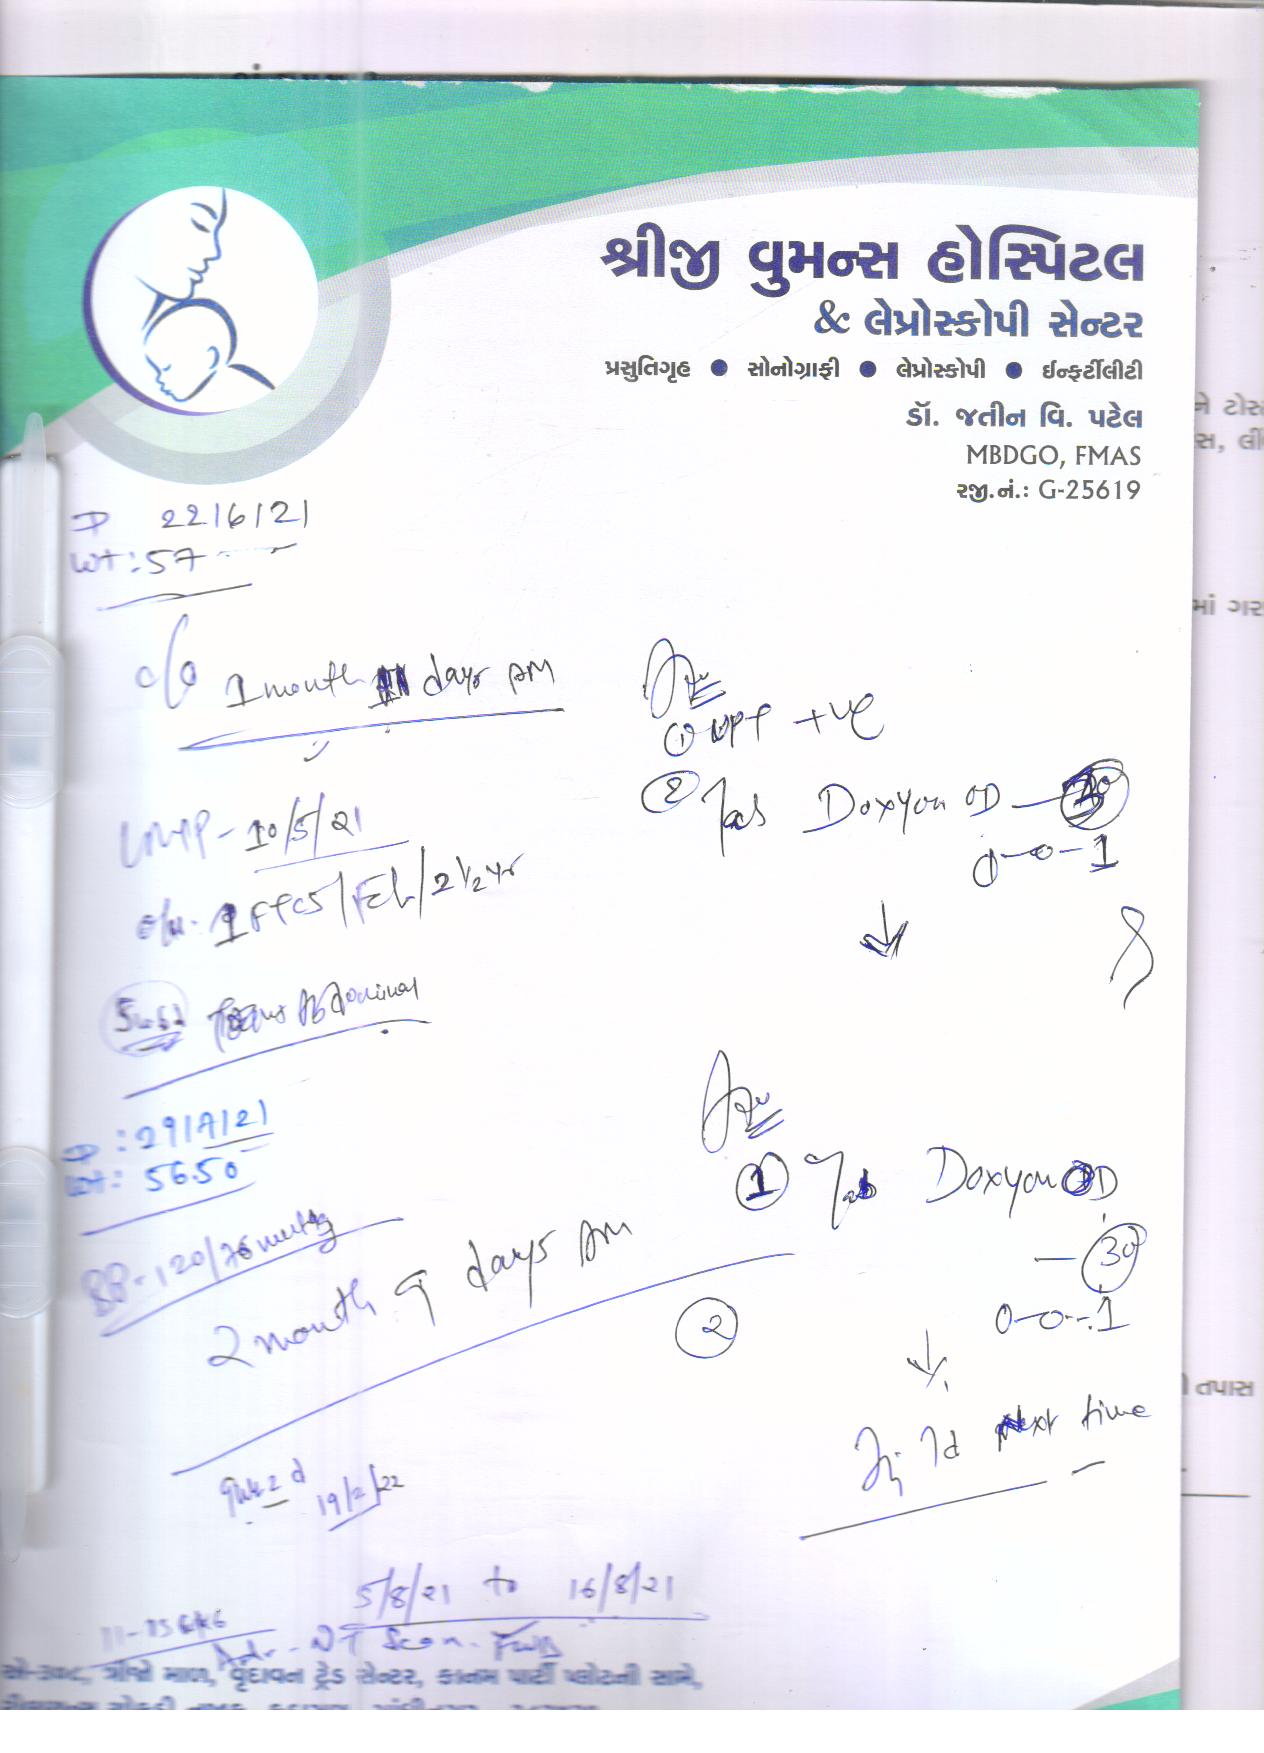 શ્રીજી વુમન્સ હોસ્પિટલ
& લેપ્રોસ્કોપી સેન્ટર
પ્રસુતિગૃહ ● સોનોગ્રાફી ● લેપ્રોસ્કોપી ● ઈન્ફર્ટીલીટી
ડૉ. જતીન વિ. પટેલ
MBDGO, FMAS
રજી.નં.: G-25619
22/6/21
Wt: 57
c/o 1 month days AM
LMP - 10/5/21
O/H. 1 FTCS/FCh/2 1/2 yr
Trans Abdominal
① UPT +ve
② Tab Doxyon OD
0-0-1
29/7/21
Wt: 56.50
BP - 120/76 mmHg
2 month 9 days AM
① Tab Doxyon OD
— 30
0-0-1
②
Inj Td Next time
19/2/22
5/8/21 to 16/8/21
Adv. - NT Scan.
ત્રીજો માળ, વૃંદાવન ટ્રેડ સેન્ટર, કાનમ પાર્ટી પ્લોટની સામે,
ને ટોસ
માં ગર
તપાસ